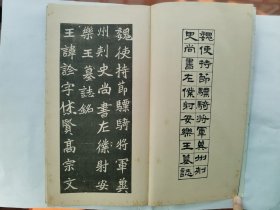 魏使持節驃騎將軍冀州刺
史尚書左僕射安樂王墓誌
魏使持節驃騎將軍冀
州刺史尚書左僕射安
樂王墓誌銘
王諱詮字休賢高宗文